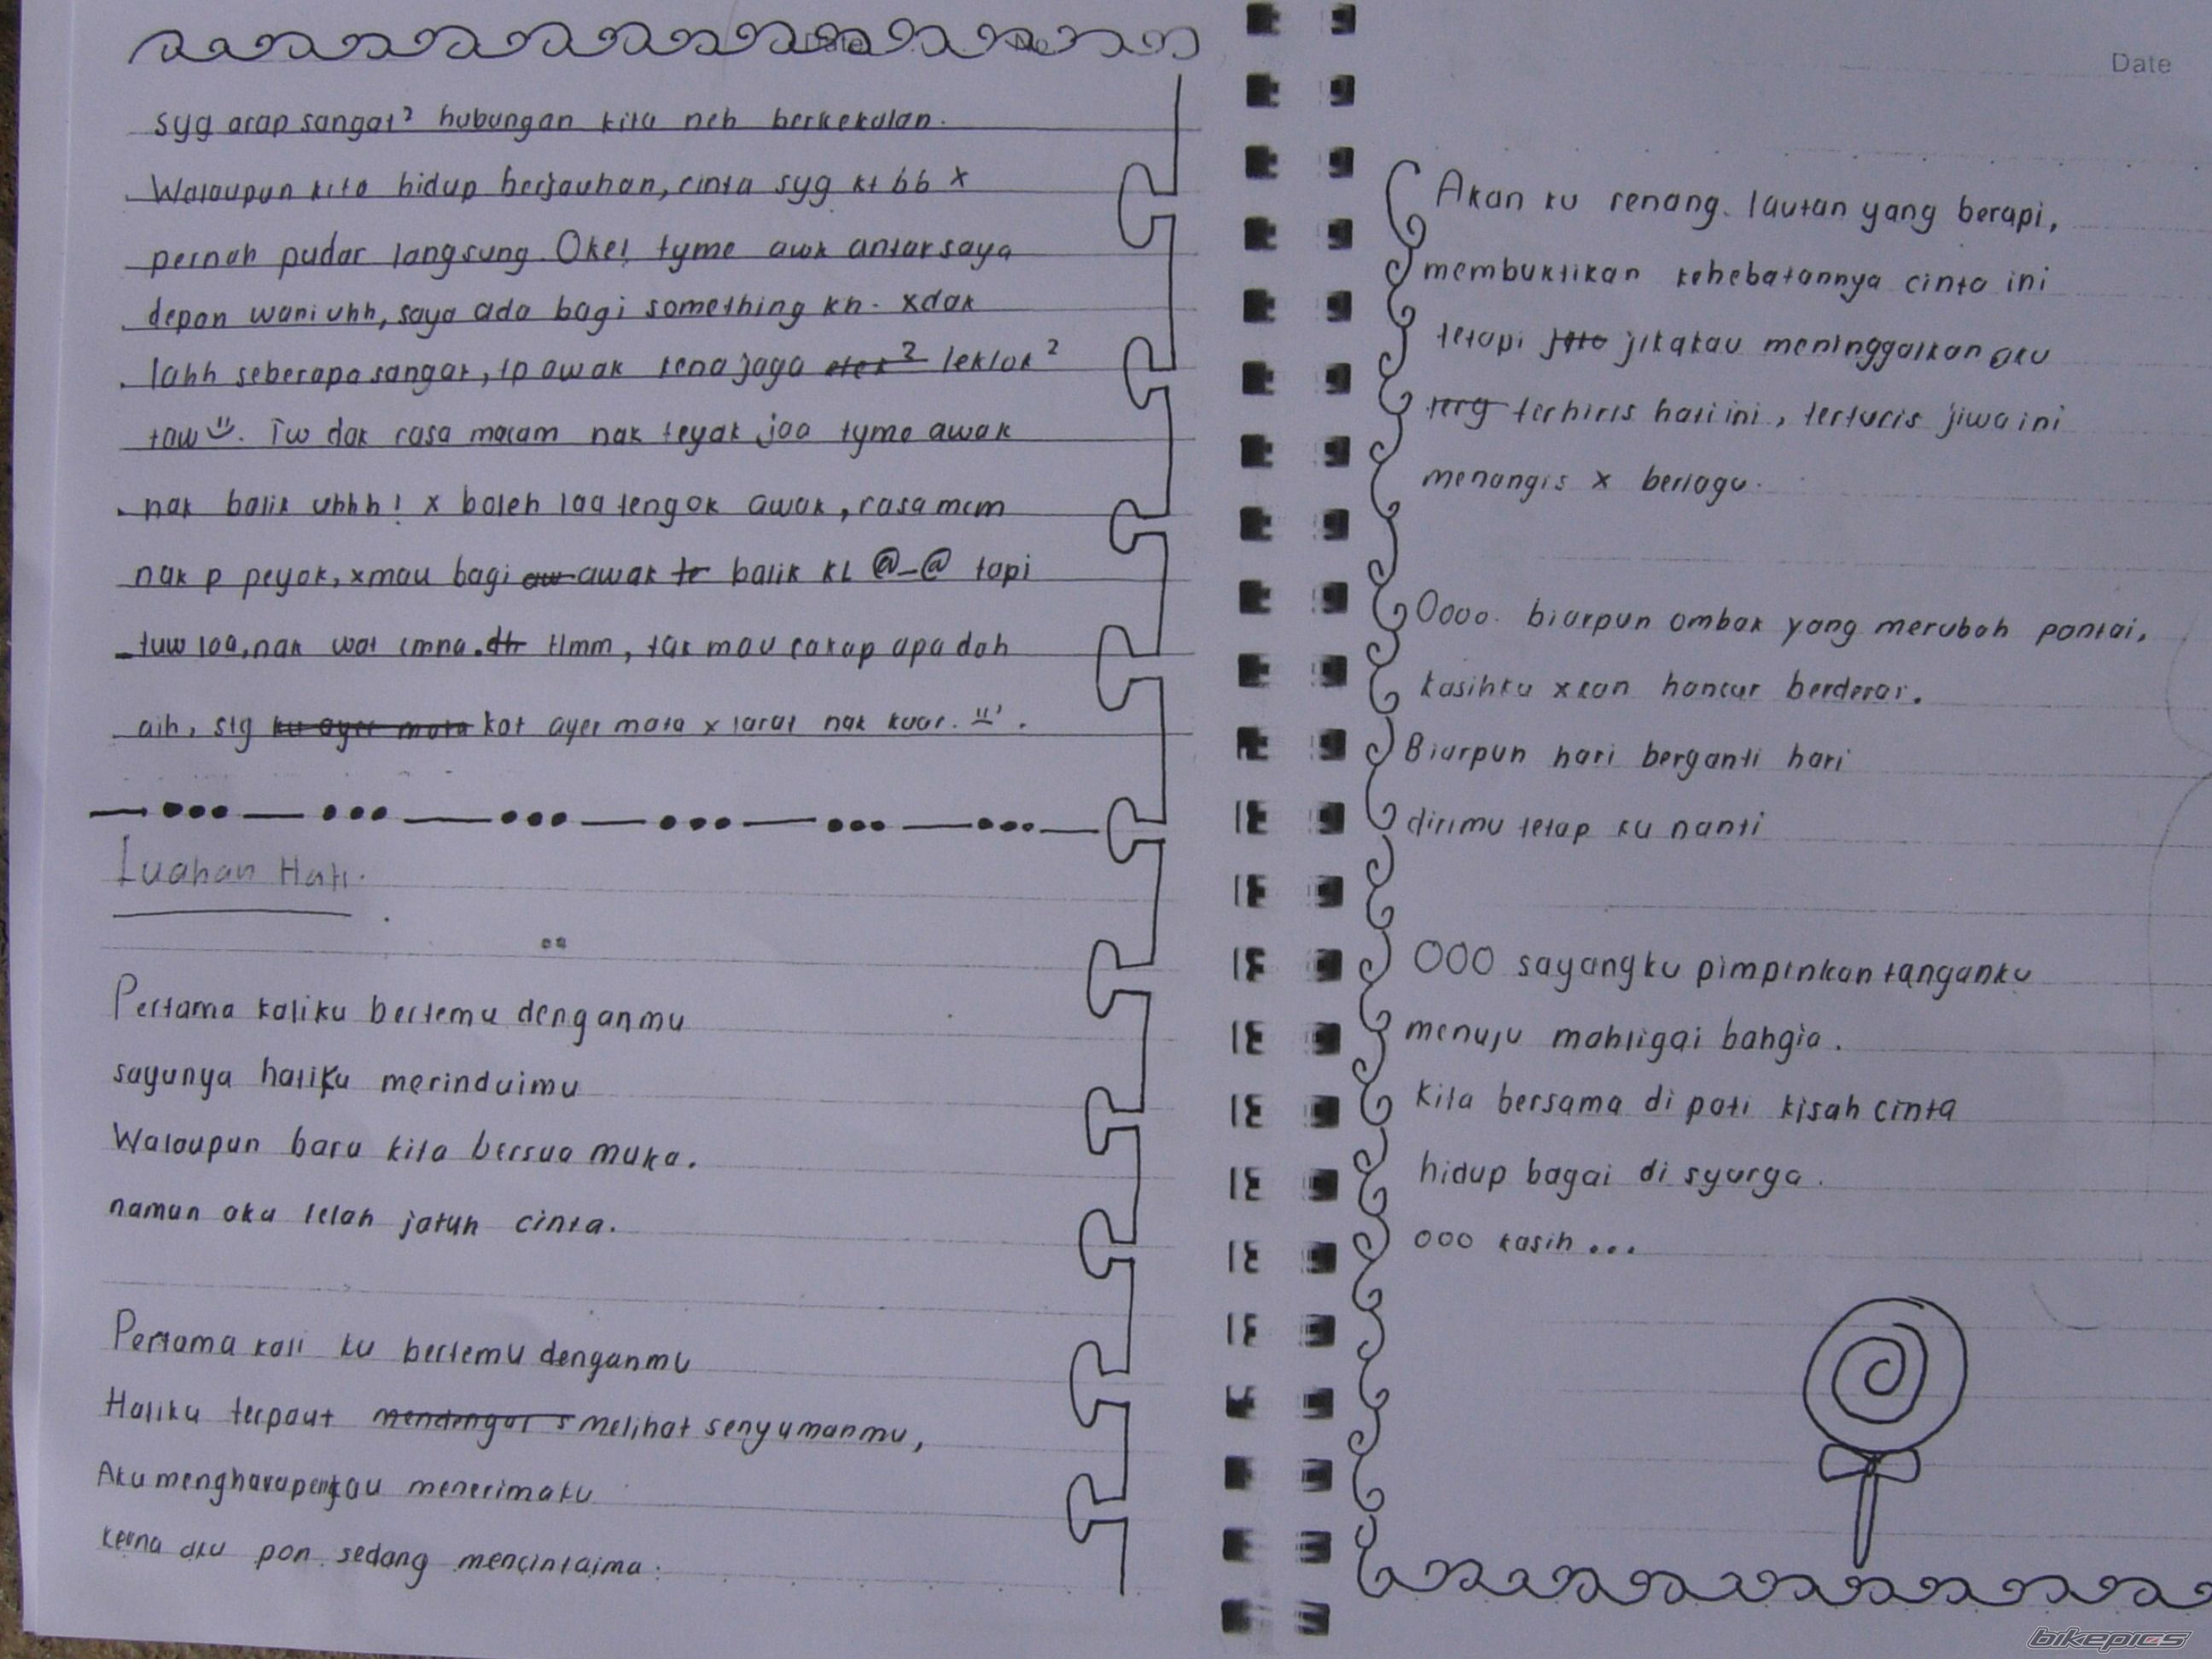 Date No
syg arap sangat² hubungan kita neh berkekalan.
Walaupun kita hidup berjauhan, cinta syg kt bb x
pernah pudar langsung. Oke! tyme awk antar saya
depan wani uhh, saya ada bagi something kn. xdak
lahh seberapa sangat, tp awak kena jaga leklok²
taw. Tw dak rasa macam nak teyak jaa tyme awak
nak balik uhhh! x boleh laa tengok awak, rasa mcm
nak p peyok, xmau bagi awak balik KL @_@ tapi
tuw laa, nak wat cmna. Hmm, tak mau cakap apa dah
aih, stg kot ayer mata x larat nak kuar.
Luahan Hati.
Pertama kaliku bertemu denganmu
sayunya hatiku merinduimu
Walaupun baru kita bersua muka.
namun aku telah jatuh cinta.
Pertama kali ku bertemu denganmu
Hatiku terpaut melihat senyumanmu,
Aku mengharap engkau menerimaku
kerna aku pon sedang mencintaimu.
Date
Akan ku renang lautan yang berapi,
membuktikan kehebatannya cinta ini
tetapi jikakau meninggalkan aku
terhiris hati ini, terturis jiwa ini
menangis x berlagu.
Oooo. biarpun ombak yang merubah pantai,
kasihku xkan hancur berderai.
Biarpun hari berganti hari
dirimu tetap ku nanti
OOO sayangku pimpinkan tanganku
menuju mahligai bahgia.
Kita bersama di pati kisah cinta
hidup bagai di syurga.
ooo kasih...
bikepics